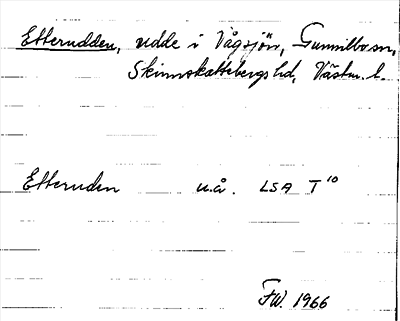 Etterudden, udde i Vågsjön, Gunnilbo sn,
Skinnskattebergs hd, Västm. l.
Etteruden u.å. LSA T¹⁰
FW. 1966